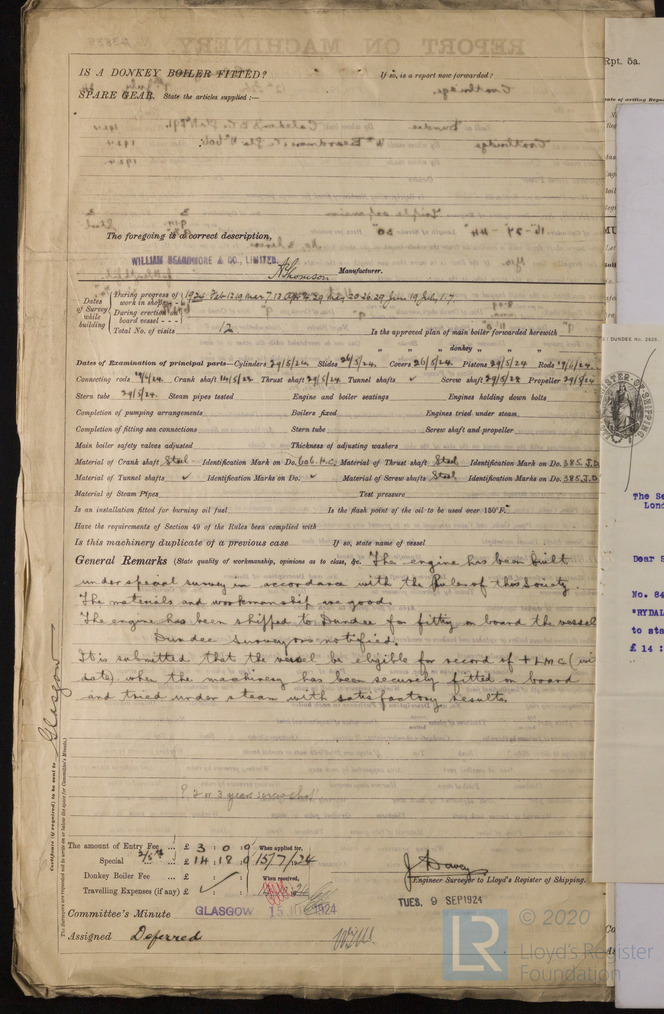 IS A DONKEY BOILER FITTED? If so, is a report now forwarded?
SPARE GEAR. State the articles supplied :—
The foregoing is a correct description,
WILLIAM BEARDMORE & CO., LIMITED.
Manufacturer.
Dates of Survey while building
During progress of work in shops - - 1924 Feb 12 19 Mar 7.13 Apr 4.29 May 20.26.29 June 19 July 1.7.
During erection on board vessel - - -
Total No. of visits 12 Is the approved plan of main boiler forwarded herewith
" " " donkey " " "
Dates of Examination of principal parts—Cylinders 29/5/24. Slides 26/5/24. Covers 26/5/24. Pistons 29/5/24 Rods 19/6/24.
Connecting rods 19/6/24. Crank shaft 14/5/23 Thrust shaft 29/5/24 Tunnel shafts ✓ Screw shaft 29/5/23 Propeller 29/5/24
Stern tube 29/5/24. Steam pipes tested Engine and boiler seatings Engines holding down bolts
Completion of pumping arrangements Boilers fixed Engines tried under steam
Completion of fitting sea connections Stern tube Screw shaft and propeller
Main boiler safety valves adjusted Thickness of adjusting washers
Material of Crank shaft Steel Identification Mark on Do. 606.H.C. Material of Thrust shaft Steel Identification Mark on Do. 385.J.D.
Material of Tunnel shafts ✓ Identification Marks on Do. ✓ Material of Screw shafts Steel Identification Marks on Do. 385.J.D.
Material of Steam Pipes Test pressure
Is an installation fitted for burning oil fuel Is the flash point of the oil to be used over 150°F.
Have the requirements of Section 49 of the Rules been complied with
Is this machinery duplicate of a previous case If so, state name of vessel
General Remarks (State quality of workmanship, opinions as to class, &c. The engine has been built
under special survey in accordance with the Rules of this Society.
The materials and workmanship are good.
The engine has been shipped to Dundee for fitting on board the vessel
Dundee Surveyors notified.
It is submitted that the vessel be eligible for record of + LMC (with
date) when the machinery has been securely fitted on board
and tried under steam with satisfactory results.
? 2 or 3 years screwshaft
Certificate (if required) to be sent to Glasgow
(The Surveyors are requested not to write on or below the space for Committee's Minute.)
The amount of Entry Fee ... £ 3 : 0 : 0 When applied for,
Special ... £ 14 : 18 : 0 15/7/24
Donkey Boiler Fee ... £ : : When received,
Travelling Expenses (if any) £ : :
J Davey
Engineer Surveyor to Lloyd's Register of Shipping.
TUES. 9 SEP 1924
Committee's Minute GLASGOW 15 JUL 1924
Assigned Deferred
Rpt. 5a.
DUNDEE No. 2625.
The Se
Lon
Dear S
No. 84
"RYDAL
to sta
£ 14 :
© 2020
LR
Lloyd's Register
Foundation